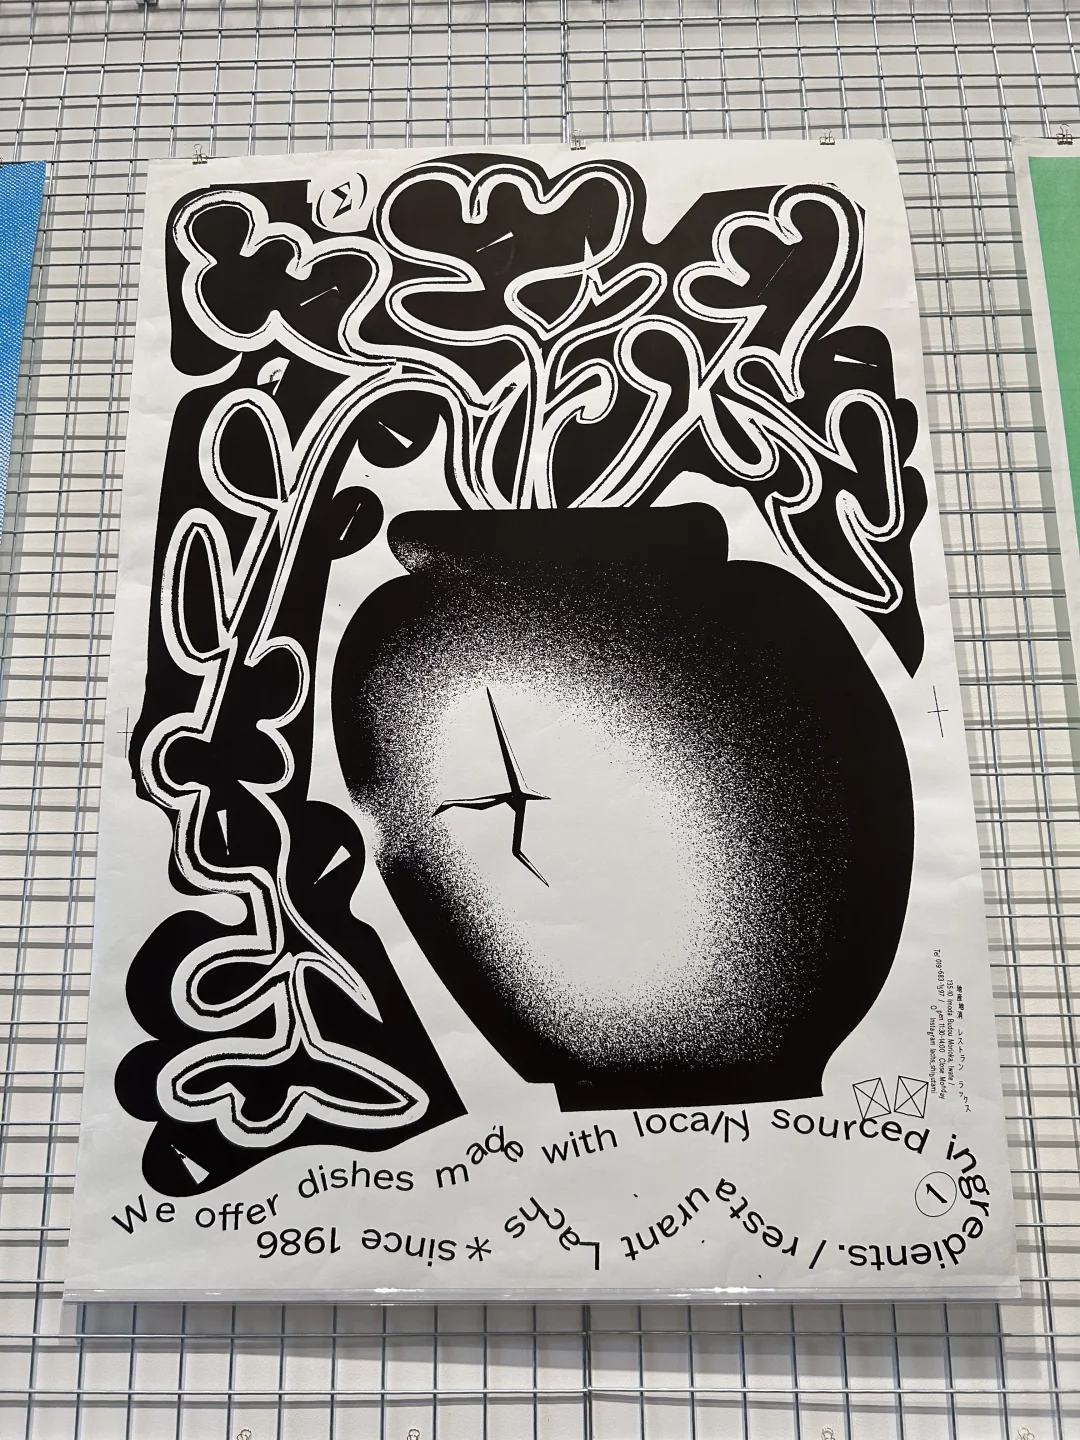 We offer dishes made with locally sourced ingredients. / restaurant Lachs * since 1986
1
地産地消 レストラン ラックス
Close Monday
Instagram